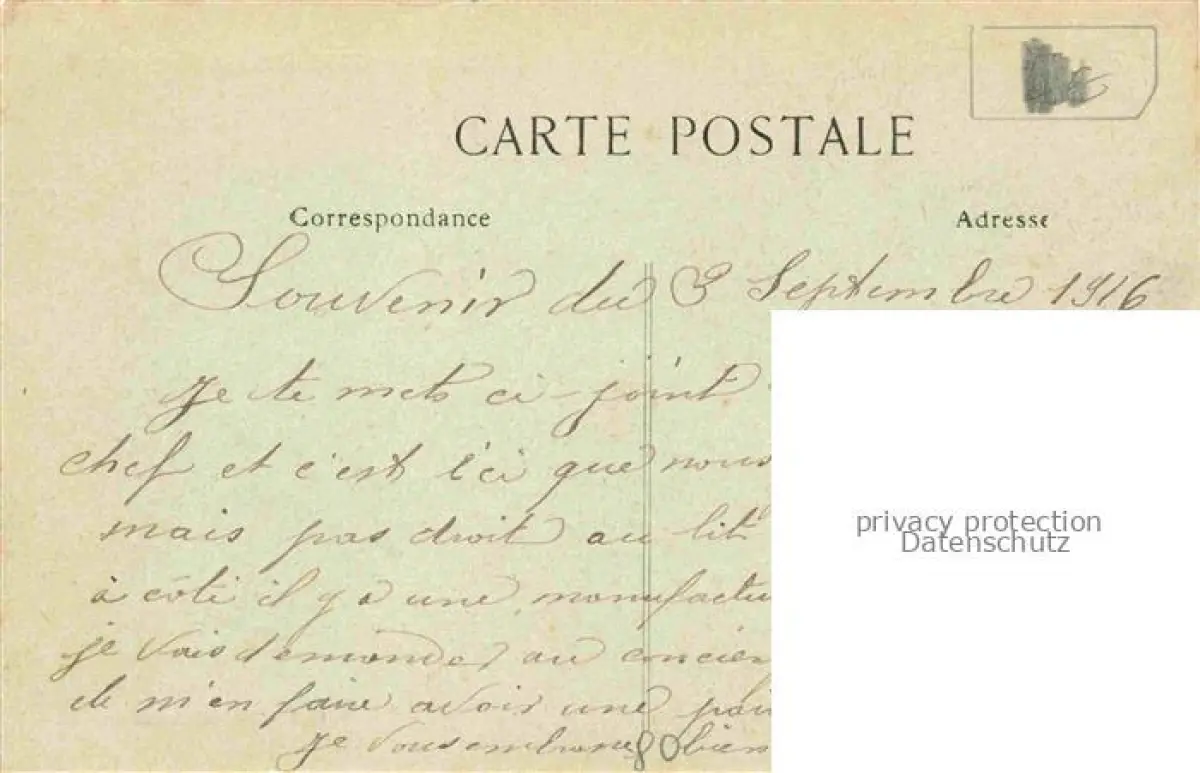 CARTE POSTALE
Correspondance
Adresse
Souvenir du 3 Septembre 1916
Je te mets ci-joint
chef et c'est ici que nous
mais pas droit au lit
à côté il y a une manufactu
je vais demander au concier
de m'en faire avoir une pai
Je vous embrasse bien
80
privacy protection
Datenschutz